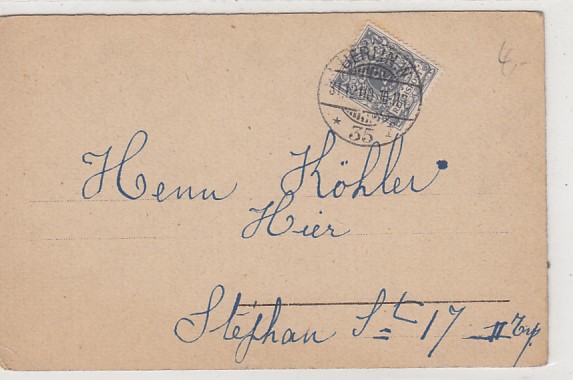 4,-
BERLIN N.
* 35
Herrn Köhler
Hier
Stephan St. 17 II Trp.